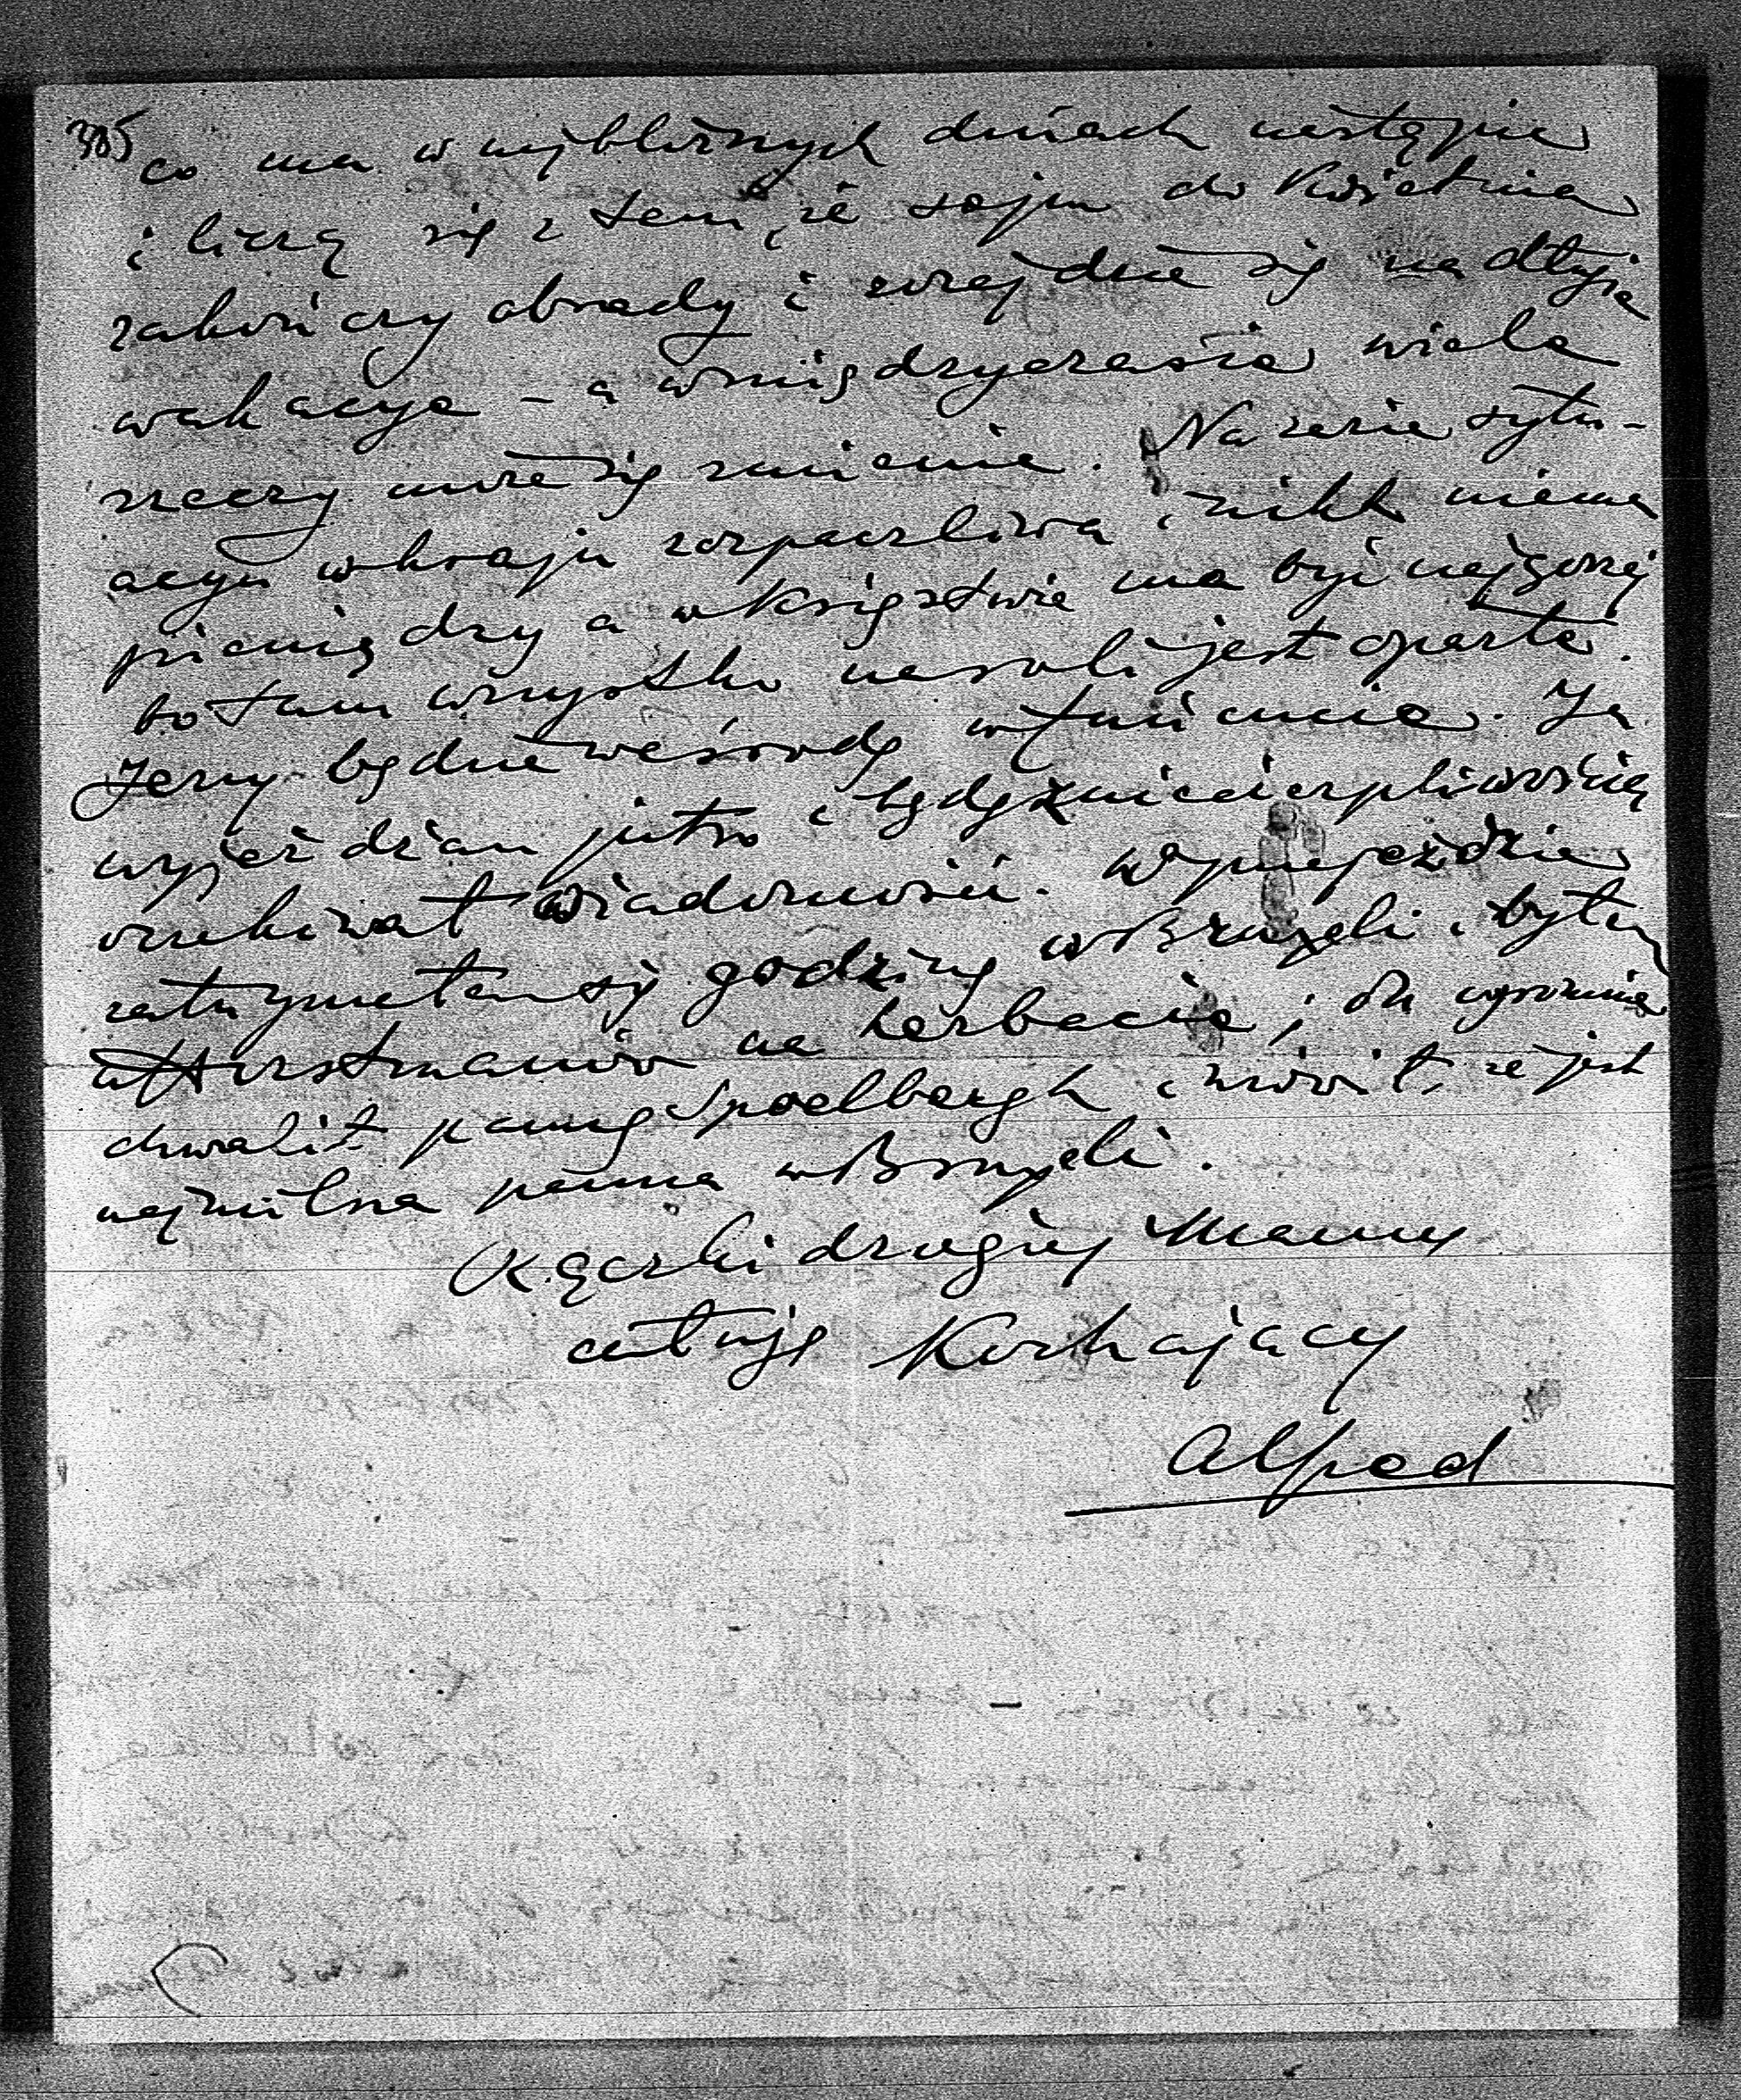 385
co ma w najbliższych dniach nastąpić
i liczą się z tem, że sejm do Kwietnia
zakończy obrady i rozejdzie się na dłuższe
wakacye – a w międzyczasie wiele
rzeczy może się zmienić. Na razie sytu-
acya w kraju rozpaczliwa, nikt niema
pieniędzy a w Księstwie ma być najgorzej
bo tam wszystko na roli jest oparte.
Jerzy będzie we środę w Łańcucie. Ja
wyjeżdżam jutro i będę z niecierpliwością
oczekiwał wiadomości. W przejeździe
zatrzymałem się godzinę w Bruxeli i byłem
u Horstmanów na herbacie; On ogromnie
chwalił pannę Spoelbergh i mówił, że jest
najmilsza panna w Bruxeli.
Rączki drogiej Mamy
całuję Kochający
Alfred